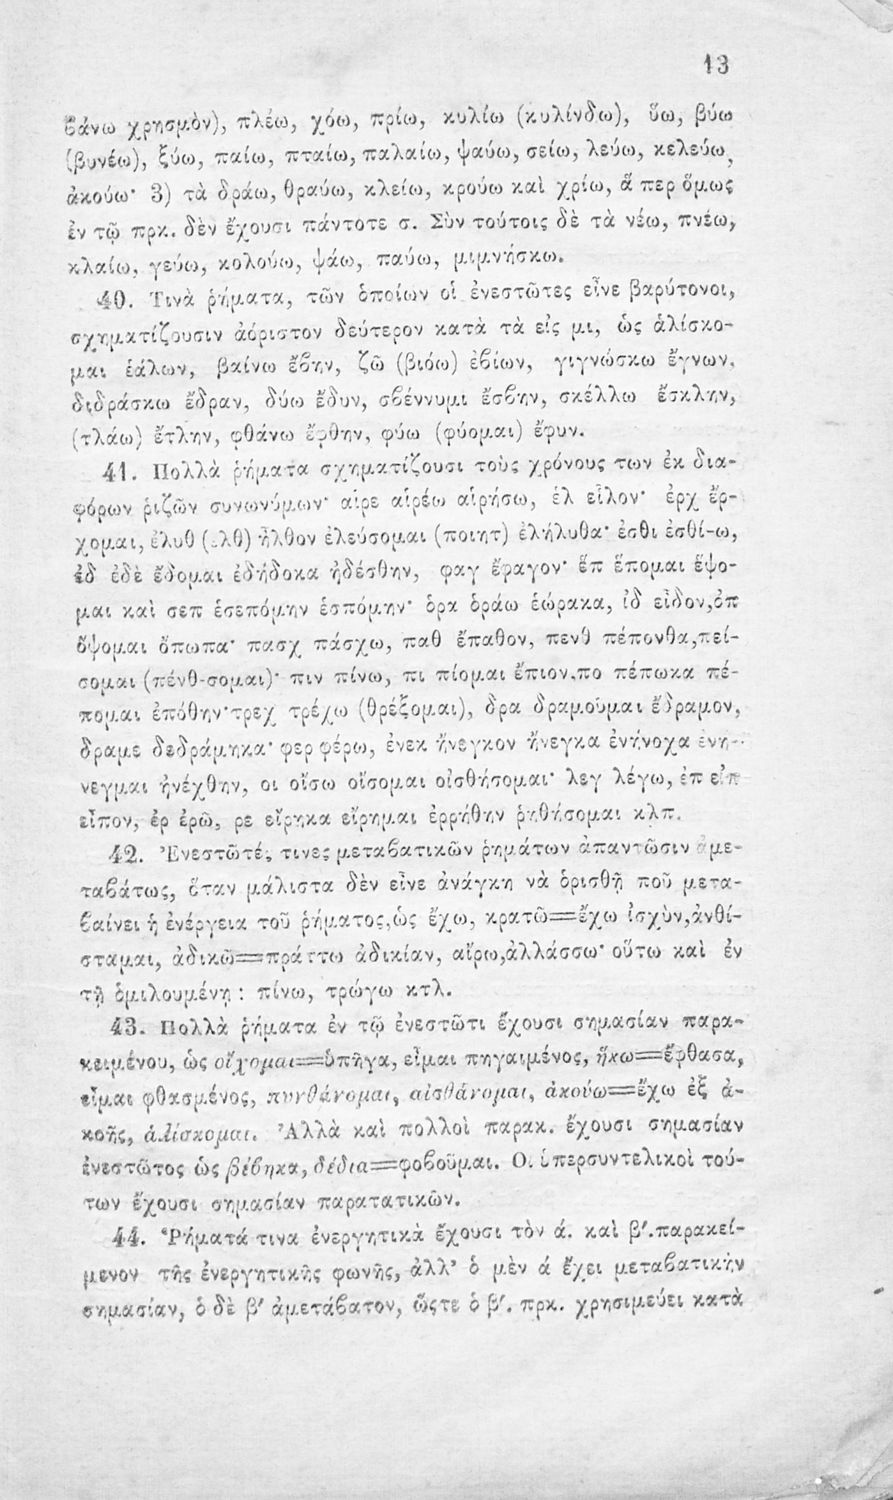 13
βάνω χρησμὸν), πλέω, χόω, πρίω, κυλίω (κυλίνδω), ὕω, βύω
(βυνέω), ξύω, παίω, πταίω, παλαίω, ψαύω, σείω, λεύω, κελεύω,
ἀκούω· 3) τὰ δράω, θραύω, κλείω, κρούω καὶ χρίω, ἅ περ ὅμως
ἐν τῷ πρκ. δὲν ἔχουσι πάντοτε σ. Σὺν τούτοις δὲ τὰ νέω, πνέω,
κλαίω, γεύω, κολούω, ψάω, παύω, μιμνήσκω.
40. Τινὰ ῥήματα, τῶν ὁποίων οἱ ἐνεστῶτες εἶνε βαρύτονοι,
σχηματίζουσιν ἀόριστον δεύτερον κατὰ τὰ εἰς μι, ὡς ἁλίσκο-
μαι ἑάλων, βαίνω ἔβην, ζῶ (βιόω) ἐβίων, γιγνώσκω ἔγνων,
διδράσκω ἔδραν, δύω ἔδυν, σβέννυμι ἔσβην, σκέλλω ἔσκλην,
(τλάω) ἔτλην, φθάνω ἔφθην, φύω (φύομαι) ἔφυν.
41. Πολλὰ ῥήματα σχηματίζουσι τοὺς χρόνους των ἐκ δια-
φόρων ῥιζῶν συνωνύμων· αἱρε αἱρέω αἱρήσω, ἑλ εἷλον· ἐρχ ἔρ-
χομαι, ἐλυθ (ἐλθ) ἦλθον ἐλεύσομαι (ποιητ) ἐλήλυθα· ἐσθι ἐσθί-ω,
ἐδ ἐδὲ ἔδομαι ἐδήδοκα ἠδέσθην, φαγ ἔφαγον· ἕπ ἕπομαι ἕψο-
μαι καὶ σεπ ἑσεπόμην ἑσπόμην· ὁρα ὁράω ἑώρακα, ἰδ εἶδον,ὀπ
ὄψομαι ὄπωπα· πασχ πάσχω, παθ ἔπαθον, πενθ πέπονθα,πεί-
σομαι (πένθ-σομαι)· πιν πίνω, πι πίομαι ἔπιον,πο πέπωκα πέ-
πομαι ἐπόθην·τρεχ τρέχω (θρέξομαι), δρα δραμοῦμαι ἔδραμον,
δραμε δεδράμηκα· φερ φέρω, ἐνεκ ἤνεγκον ἤνεγκα ἐνήνοχα ἐνή-
νεγμαι ἠνέχθην, οι οἴσω οἴσομαι οἰσθήσομαι· λεγ λέγω, ἐπ εἰπ
εἶπον, ἐρ ἐρῶ, ρε εἴρηκα εἴρημαι ἐρρήθην ῥηθήσομαι κλπ.
42. Ἐνεστῶτές τινες μεταβατικῶν ῥημάτων ἀπαντῶσιν ἀμε-
ταβάτως, ὅταν μάλιστα δὲν εἶνε ἀνάγκη νὰ ὁρισθῇ ποῦ μετα-
βαίνει ἡ ἐνέργεια τοῦ ῥήματος,ὡς ἔχω, κρατῶ=ἔχω ἰσχὺν,ἀνθί-
σταμαι, ἀδικῶ=πράττω ἀδικίαν, αἴρω,ἀλλάσσω· οὕτω καὶ ἐν
τῇ ὁμιλουμένῃ : πίνω, τρώγω κτλ.
43. Πολλὰ ῥήματα ἐν τῷ ἐνεστῶτι ἔχουσι σημασίαν παρα-
κειμένου, ὡς οἴχομαι=ὑπῆγα, εἶμαι πηγαιμένος, ἥκω=ἔφθασα,
εἶμαι φθασμένος, πυνθάνομαι, αἰσθάνομαι, ἀκούω=ἔχω ἐξ ἀ-
κοῆς, ἁλίσκομαι. Ἀλλὰ καὶ πολλοὶ παρακ. ἔχουσι σημασίαν
ἐνεστῶτος ὡς βέβηκα, δέδια=φοβοῦμαι. Οἱ ὑπερσυντελικοὶ τού-
των ἔχουσι σημασίαν παρατατικῶν.
44. Ῥήματά τινα ἐνεργητικὰ ἔχουσι τὸν ά. καὶ β′.παρακεί-
μενον τῆς ἐνεργητικῆς φωνῆς, ἀλλ' ὁ μὲν ά ἔχει μεταβατικὴν
σημασίαν, ὁ δὲ β′ ἀμετάβατον, ὥςτε ὁ β′. πρκ. χρησιμεύει κατὰ